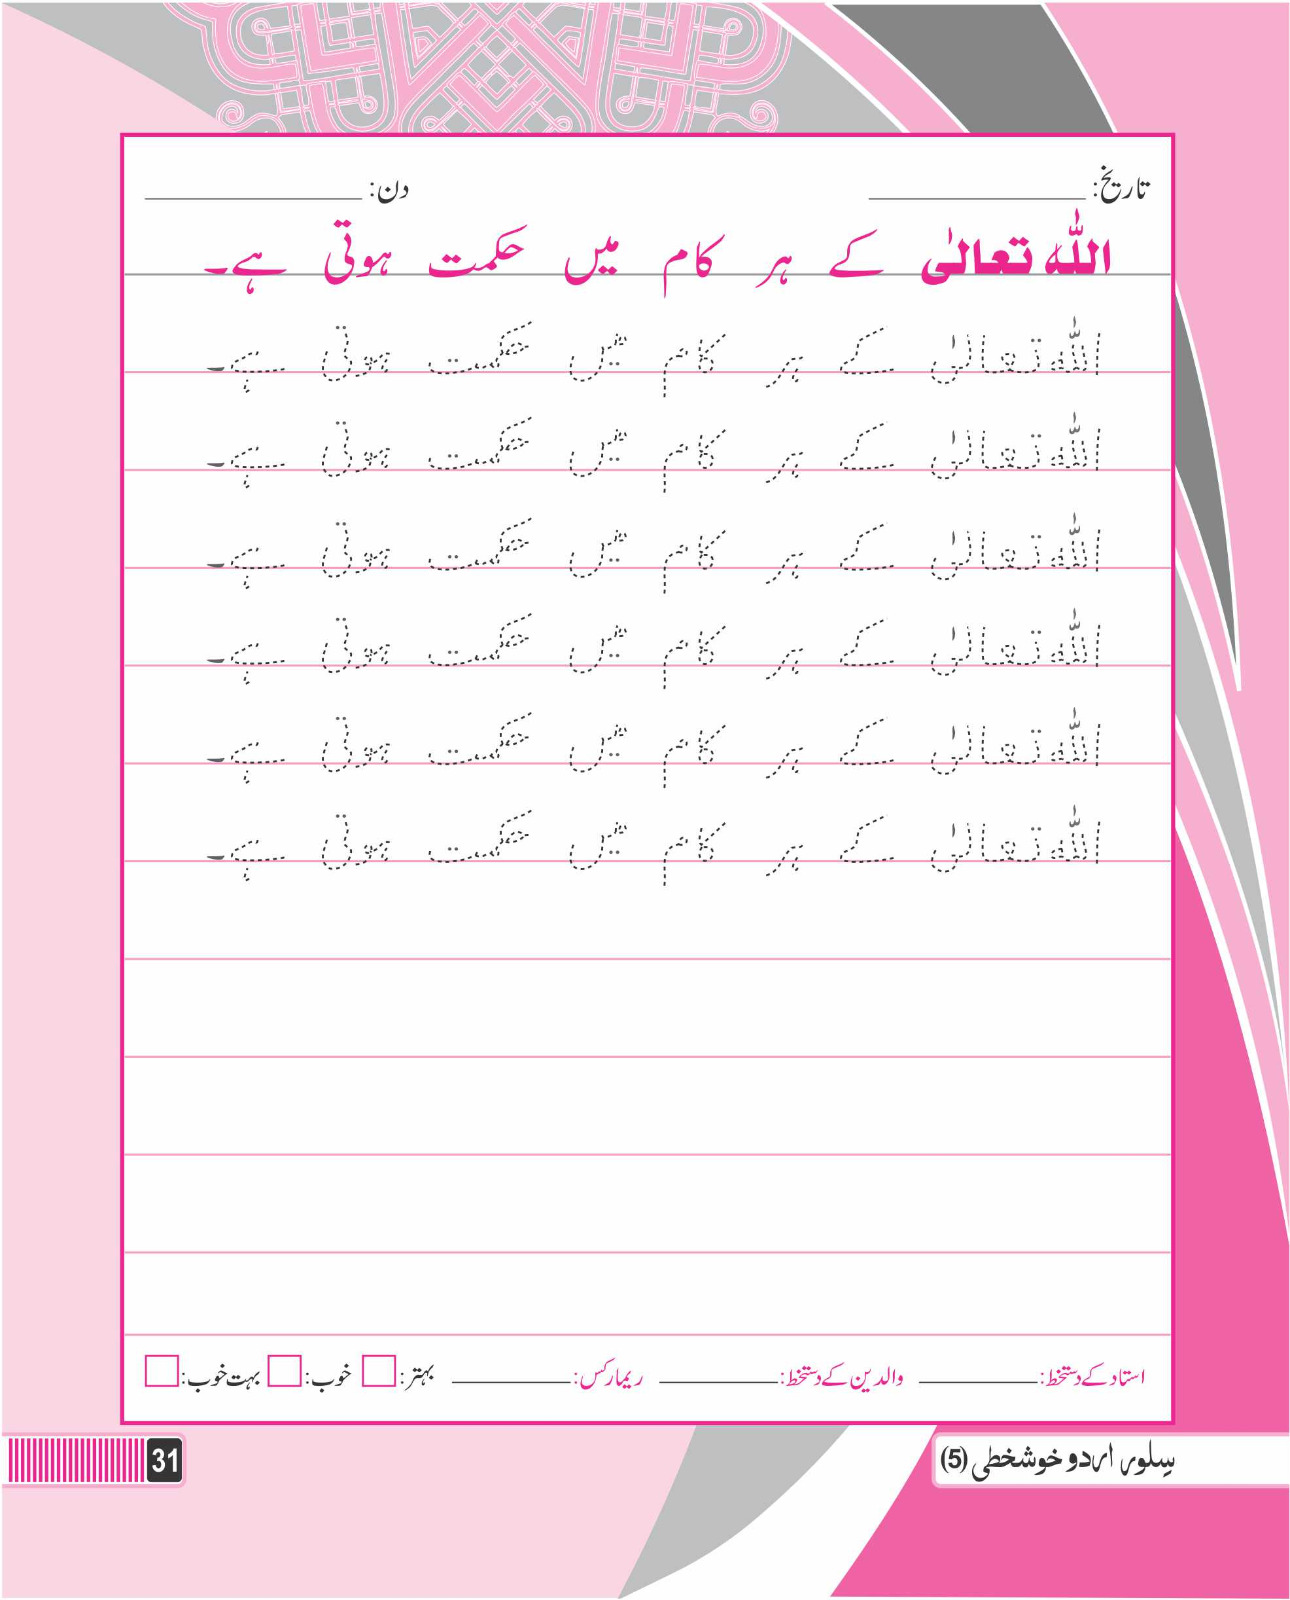 تاریخ: ____________ دن: ____________
اللہ تعالیٰ کے ہر کام میں حکمت ہوتی ہے۔
اللہ تعالیٰ کے ہر کام میں حکمت ہوتی ہے۔
اللہ تعالیٰ کے ہر کام میں حکمت ہوتی ہے۔
اللہ تعالیٰ کے ہر کام میں حکمت ہوتی ہے۔
اللہ تعالیٰ کے ہر کام میں حکمت ہوتی ہے۔
اللہ تعالیٰ کے ہر کام میں حکمت ہوتی ہے۔
اللہ تعالیٰ کے ہر کام میں حکمت ہوتی ہے۔
استاد کے دستخط: ________ والدین کے دستخط: ________ ریمارکس: ________ بہتر: خوب: بہت خوب:
سِلور اردو خوشخطی (5)
31